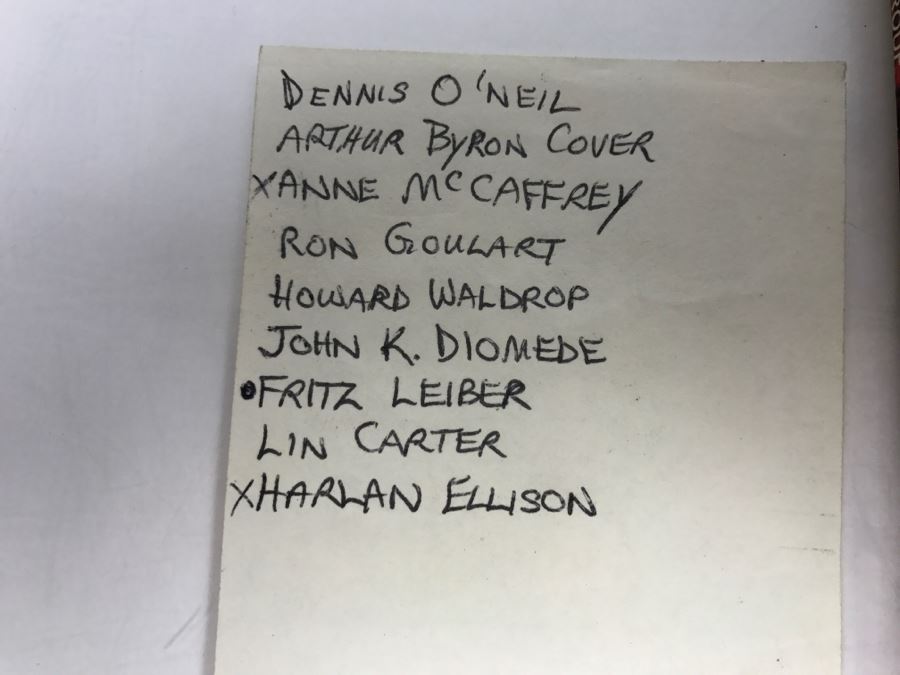 DENNIS O'NEIL
ARTHUR BYRON COVER
XANNE McCAFFREY
RON GOULART
HOWARD WALDROP
JOHN K. DIOMEDE
•FRITZ LEIBER
LIN CARTER
XHARLAN ELLISON